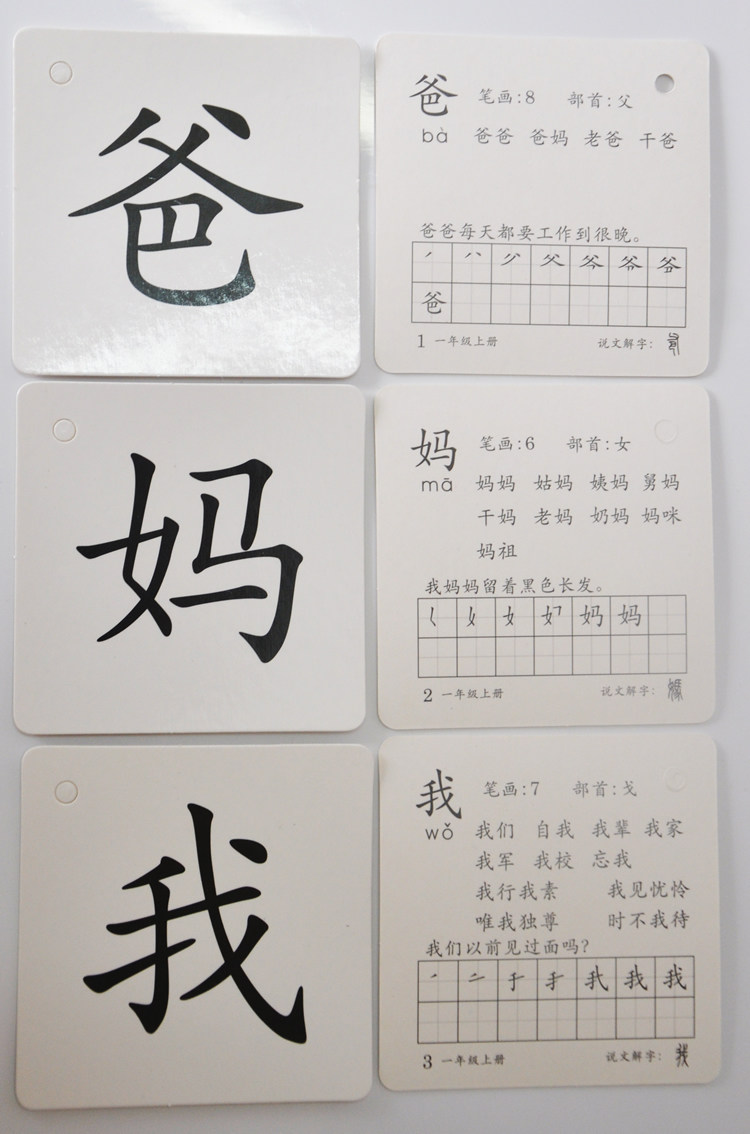 爸
爸 笔画:8 部首:父
bà 爸爸 爸妈 老爸 干爸
爸爸每天都要工作到很晚。
爸
1 一年级上册 说文解字:
妈
妈 笔画:6 部首:女
mā 妈妈 姑妈 姨妈 舅妈
干妈 老妈 奶妈 妈咪
妈祖
我妈妈留着黑色长发。
妈 妈
2 一年级上册 说文解字:
我
我 笔画:7 部首:戈
wǒ 我们 自我 我辈 我家
我军 我校 忘我
我行我素 我见忧怜
唯我独尊 时不我待
我们以前见过面吗?
我 我
3 一年级上册 说文解字: